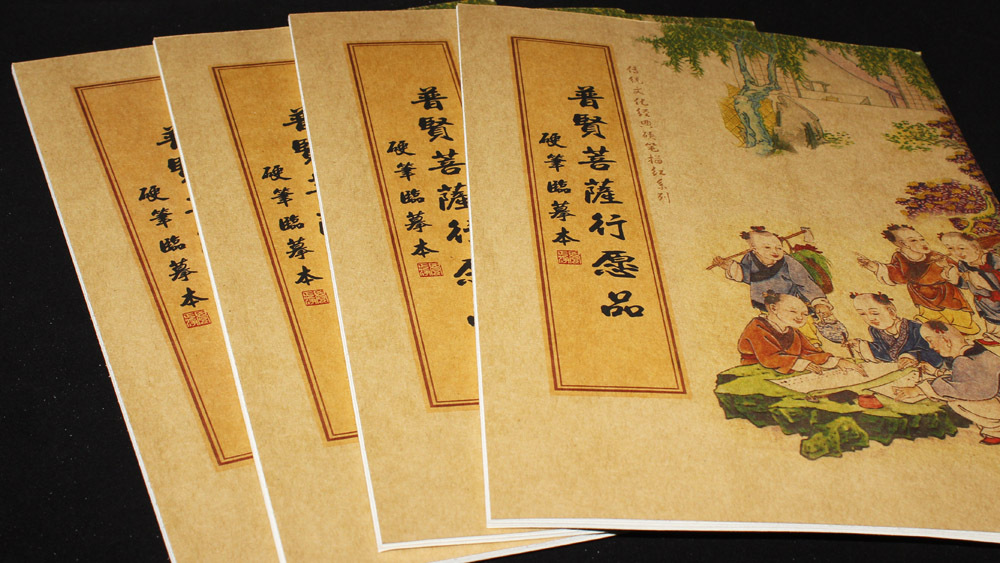 传统文化经典硬笔描红系列
普賢菩薩行愿品
硬筆臨摹本
普賢菩薩行愿
硬筆臨摹本
普賢
硬筆臨摹本
普賢
硬筆臨摹本